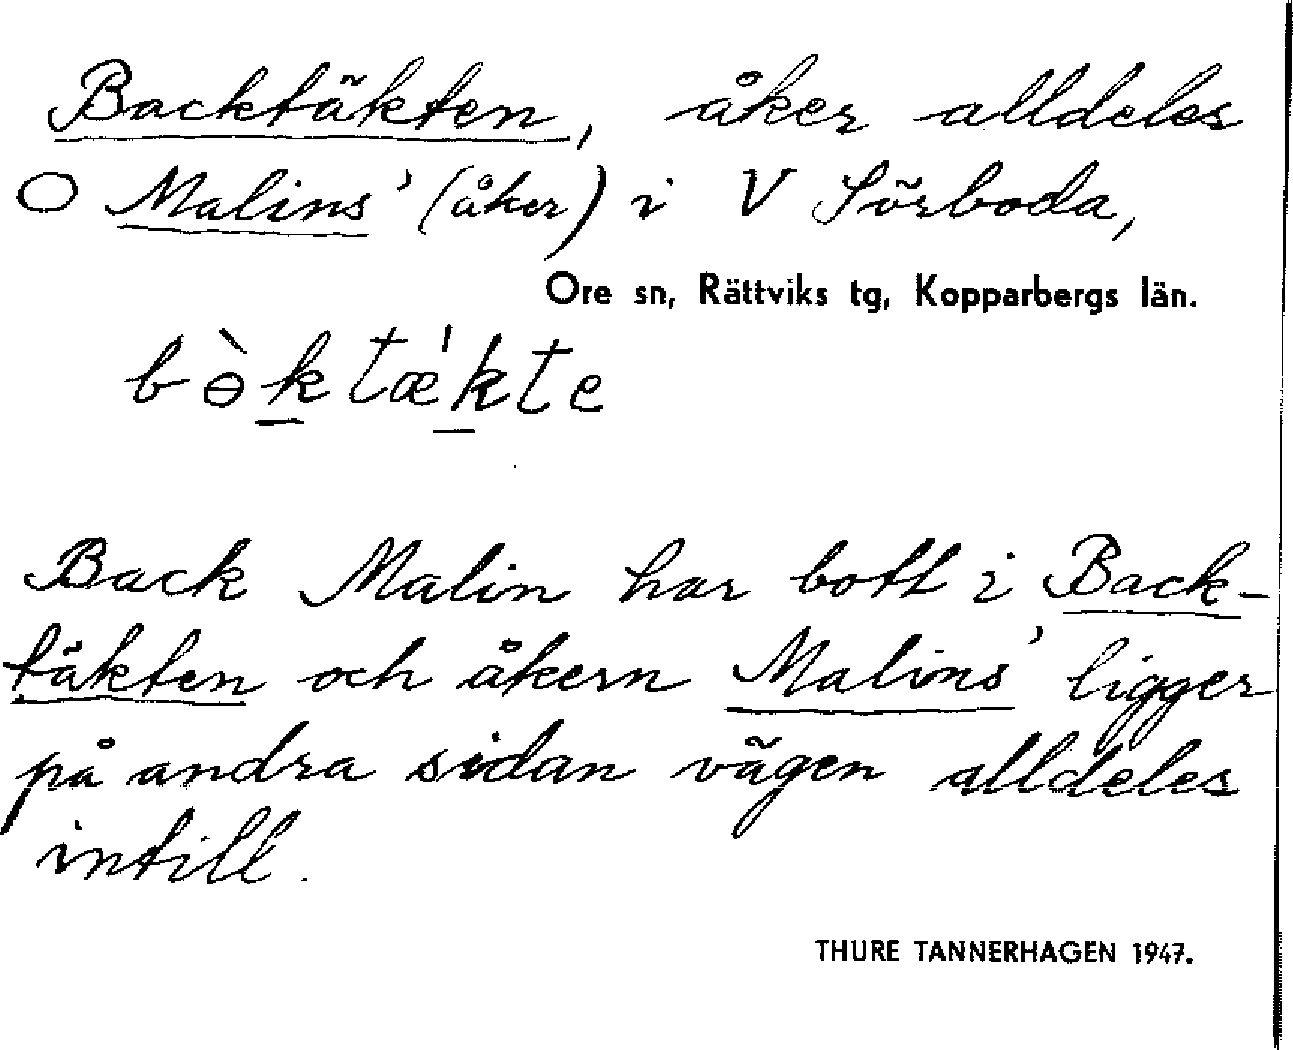 Backtäkten, åker alldeles
O Malins' (åker) i V Sörboda,
Ore sn, Rättviks tg, Kopparbergs län.
bɵ̀ktæ'kte
Back Malin har bott i Back-
täkten och åkern Malins' ligger
på andra sidan vägen alldeles
intill.
THURE TANNERHAGEN 1947.